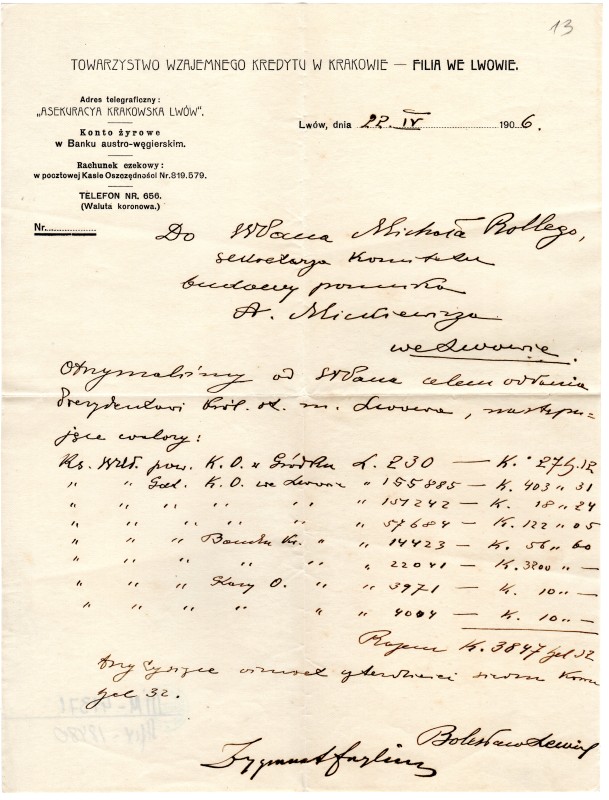 13
TOWARZYSTWO WZAJEMNEGO KREDYTU W KRAKOWIE — FILIA WE LWOWIE.
Adres telegraficzny:
„ASEKURACYA KRAKOWSKA LWÓW".
Konto żyrowe
w Banku austro-węgierskim.
Rachunek czekowy:
w pocztowej Kasie Oszczędności Nr. 819.579.
TELEFON NR. 656.
(Waluta koronowa.)
Nr.
Lwów, dnia 22. IV 1906.
Do WPana Michała Rollego,
sekretarza Komitetu
budowy pomnika
A. Mickiewicza
we Lwowie.
Otrzymaliśmy od WPana celem oddania
Prezydentowi król. st. m. Lwowa, następu-
jące walory:
Ks. Wkł. pow. K. O. w Gródku L. 230 — K. 27 h. 12
„ „ Gal. K. O. we Lwowie „ 155885 — K. 403 „ 31
„ „ „ „ „ „ 157242 — K. 18 „ 24
„ „ „ „ „ „ 57684 — K. 122 „ 05
„ „ „ Banku Kr. „ „ 14423 — K. 56 „ 60
„ „ „ „ „ „ 22041 — K. 3200 „ —
„ „ „ Kasy O. „ „ 3971 — K. 10 „ —
„ „ „ „ „ „ 4004 — K. 10 „ —
Razem K. 3847 hal 32
trzy tysiące ośmset czterdzieści siedm Koron
hal 32.
Bolesław Lewicki
Zygmunt